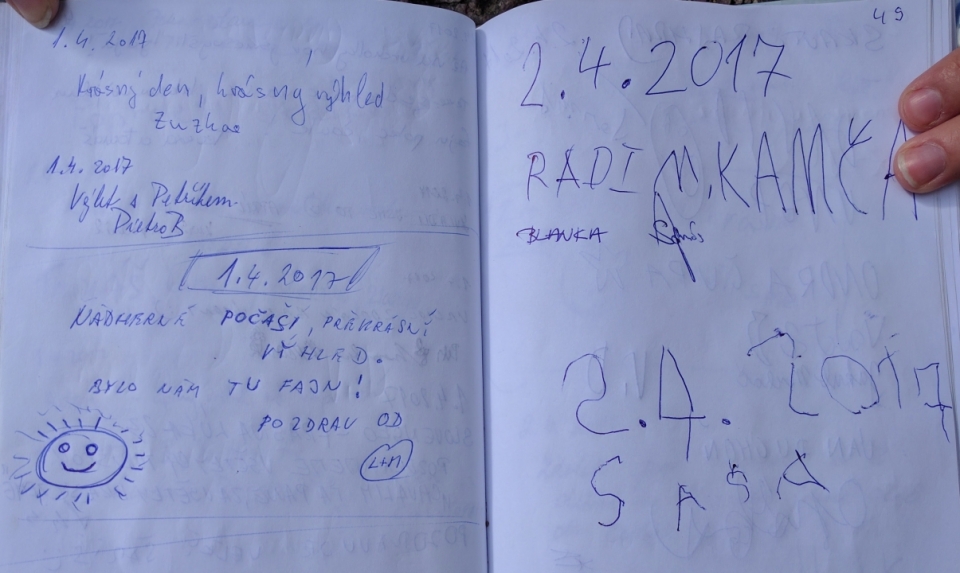 1.4.2017
Krásný den, krásny výhled
Zuzka
1.4.2017
Výlet s Petříkem
PietroB
1.4.2017
NÁDHERNÉ POČASÍ, PŘEKRÁSNÍ
VÝHLED.
BYLO NÁM TU FAJN!
POZDRAV OD
L+M
49
2.4.2017
RADIM, KAMČA
BLANKA
2.4.2017
SAŠA